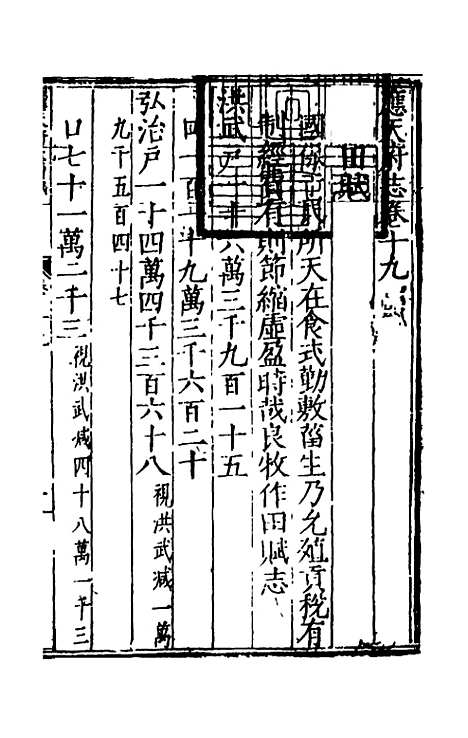 應天府志卷十九
田賦
國依于民所天在食式勤敷菑生乃允殖貢稅有
制經費有則節縮虛盈時哉良牧作田賦志
洪武戶一十六萬三千九百一十五
口一百一十九萬三千六百二十
弘治戶一十四萬四千三百六十八視洪武減一萬
九千五百四十七
口七十一萬二千三視洪武減四十八萬一千三